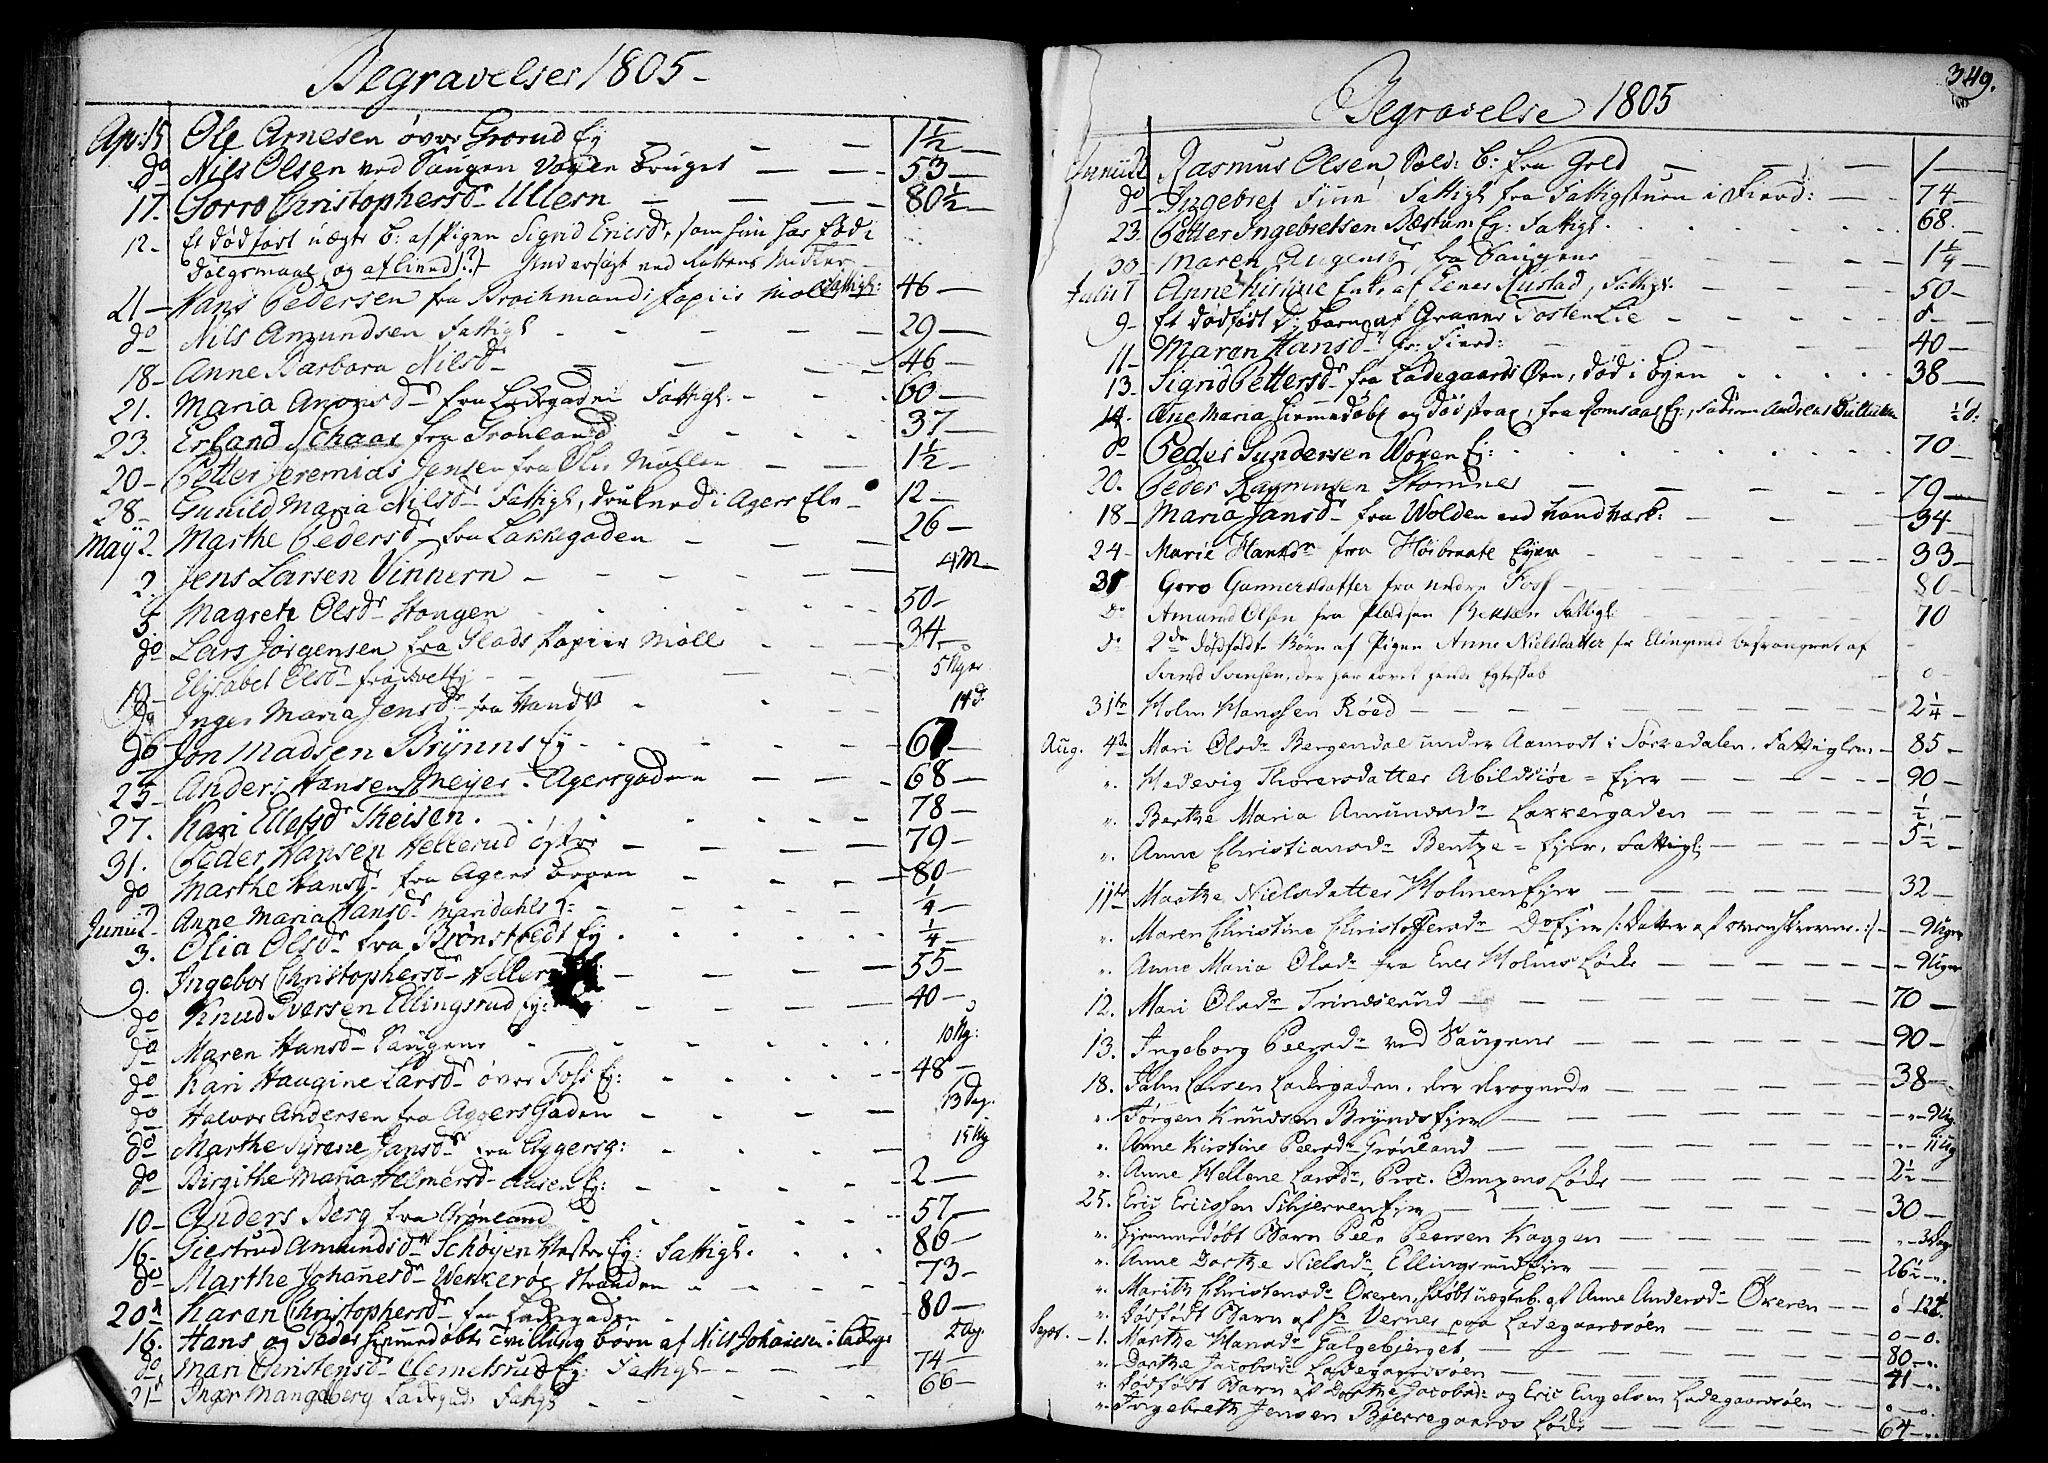 Begravelser 1805
Apr: 15 Ole Arnesen övre Grorud Ej 1½
do Nils Olsen ved Saugen Vojen Bruget 53
17. Gorro Christophersdr Ullern 80½
12 Et dödföst uægte B: af Pigen Sigrid Ericsdr, som hun har föd i
Dölgsmaal og aflived (?)
21 Hans Pedersen fra Brochmands Papiir Mölle Fattigl: 46
do Nils Amundsen Fattigl 29
18 Anne Barbara Nilsdr 46
21. Maria Amonsdr fra Ladegaden Fattigl. 60
23. Erland Schaar fra Grønland 37
20 Petter Jeremias Jensen fra Övre Møllen 1½
28 Gunild Maria Nilsdr Fattigl, druknede i Agers Elv 12
May 2. Marthe Pedersdr fra Lakkegaden 26
2. Jens Larsen Vinnern 4 M
5 Magrete Olsdr Stongen 50
do Lars Jörgensen fra Glads Papiir Mölle 34
Elisabet Olsdr fra Tvetej 5 Uger
do Inger Maria Jensdr fra 14 d.
do Jon Madsen Brynns Ej 67
25 Anders Hansen Meyer Agersgaden 68
27. Kari Ellefsdr Theisen 78
31. Peder Hansen Hellerud öfre 79
do Marthe Hansdr fra Agers Broen 80
Junii 2 Anne Maria Hansdr Maridahls ¼
3. Olia Olsdr fra Brønstedt Ej ¼
9. Ingebor Christophersdr 55
do Knud Iversen Ellingsrud Ej: 40
do Maren Hansdr Saugene 10 Ug:
do Kari Haugine Larsdr övre Foss Ej: 48
do Halvor Andersen fra Aggers Gaden 13 Dag.
do Marthe Syrene Jansdr fra Aggersg: 15 Ug
do Birgithe Maria Helmersdr Aasen Ej: 2
10 Anders Berg fra Grønland 57
16 Giertrud Amundsdr Schøyen Vestre Ej: Fattigl. 86
do Marthe Johanesdr Wækerøe Stranden 73
20h Karen Christophersdr fra Ladegaden 80
16. Hans og Peder hiemmedøbte Tvilling børn af Nils Johansen i Ladeg: 2 Dag.
do Mari Christensdr Clemetsrud Ej: Fattigl 74
21 Inger Mangeberg Ladegad: Fattigl 66
349.
Begravelse 1805
Junii Rasmus Olsen Sold: B: fra Gold 1
do Ingebret Finne Fattigl fra Fattigstuen i Fierd: 74
23. Petter Ingebretsen Bærum Ej: Fattigl. 68.
30 Maren Augensdr fra Saugene 1¼
Julii 7 Anne Kirstine Enke af Enes Rustad, Fattigl. 50
9 Et dödföst d: barn af Granne Tosten Lie 0
11 Maren Hansdr Gr: Fierd: 40
13. Sigrid Pettersdr fra Ladegaards Øen, död i byen 38
14. Ane Maria hiemmedøbt og död strax, fra Romsaas Ej:, Faderen Andreas ½ d:
do Peder Gundersen Woxen Ej: 70
20. Peder Rasmusen Stomner 79
18 Maria Jansdr fra Wolden ved Handværk: 34
24 Marie Hansdr fra Høibraate Ejer 33
31 Goro Gunnersdatter fra nedre Foss 80
do Amund Olsen fra Pladsen Bekken Fattigl 70
do 2de dødfødte Børn af Pigen Anne Nielsdatter fra Elingsrud besvangret af
Svend Svensen, der har lovet hende Egteskab 0
31te Holm Hanssen Røed 2¼
Aug. 4de Mari Olsdr Bergendal under Aamodt i Sørkedalen. Fattiglem 85
". Hedevig Thorersdatter Abildsøe Ejer 90
". Berthe Maria Amundsdr Lakkergaden ½
". Anne Christiansdr Bentze Ejer. Fattigl 5½
11te Marthe Nielsdatter Holmen Ejer 32
". Maren Christine Christoffersdr Do Ejer /: Datter af ovenskrevne :/ 9 Uger
". Anne Maria Olsdr fra Enes Holms Løkke 9 Uger
12. Mari Olsdr Trindserud 70
13. Ingeborg Peersdr ved Saugene 90
18. Palm Larsen Ladegaden. der druknede 38
". Jørgen Knudsen Brynds Ejer 9 Ug
". Anne Kirstine Peersdr Grønland 11 Ug
". Anne Hellene Larsdr, Proc. Omzens Løkke 2½
25. Eric Ericssen Schjerven Ejer 30
". Hjemmedøbt Barn Peer Peersen Kaggen 3 Dage
". Anne Dorthe Nielsdr, Ellingsrud Ejer 26½
". Marithe Christensdr Økeren, Døbt uægte b. af Anne Andersdr Økeren
". Dødfødt Barn af Hr Vernes paa Ladegaardsøen 0
Sept. 1. Marthe Hansdr Galgebjerget 80
". Dorthe Jacobsdr Ladegaardsøen 41
". Dødfødt Barn af Dorthe Jacobsdr og Eric Engelsen Ladegaardsøen 0
". Ingebreth Jensen Bjerregaards Løkke 64